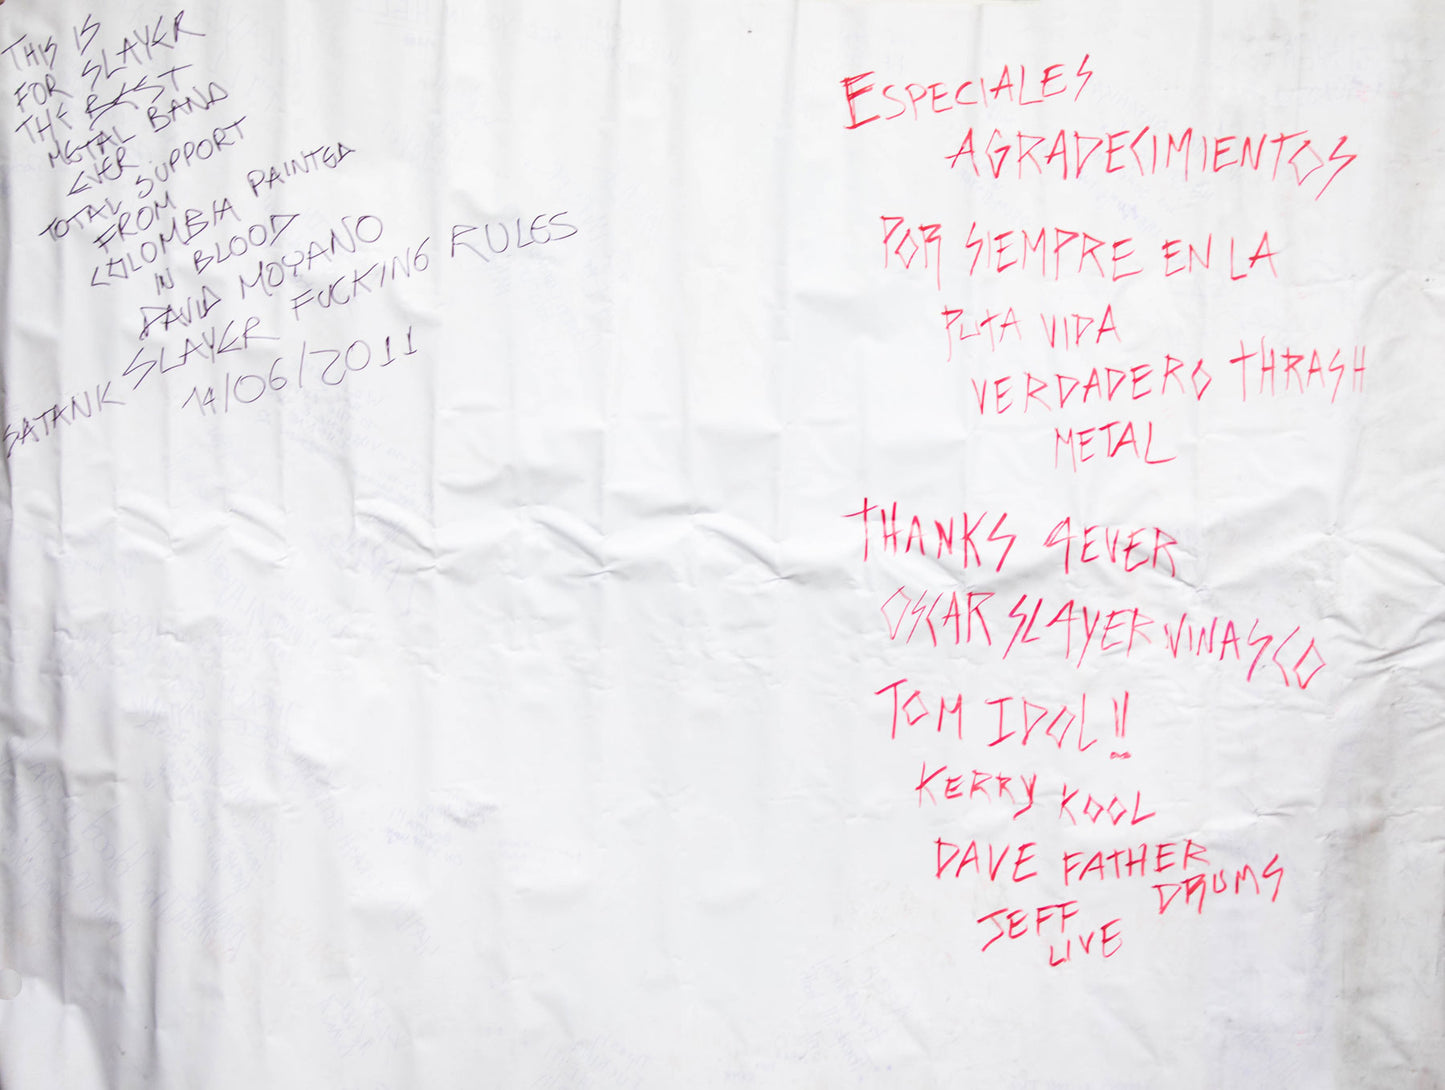 THIS IS
FOR SLAYER
THE BEST
METAL BAND
EVER
TOTAL SUPPORT
FROM
COLOMBIA PAINTED
IN BLOOD
DAVID MOYANO
SATANK SLAYER FUCKING RULES
14/06/2011
ESPECIALES
AGRADECIMIENTOS
POR SIEMPRE EN LA
PUTA VIDA
VERDADERO THRASH
METAL
THANKS 4EVER
OSCAR SL4YER VINASCO
TOM IDOL!!
KERRY KOOL
DAVE FATHER
DRUMS
JEFF
LIVE